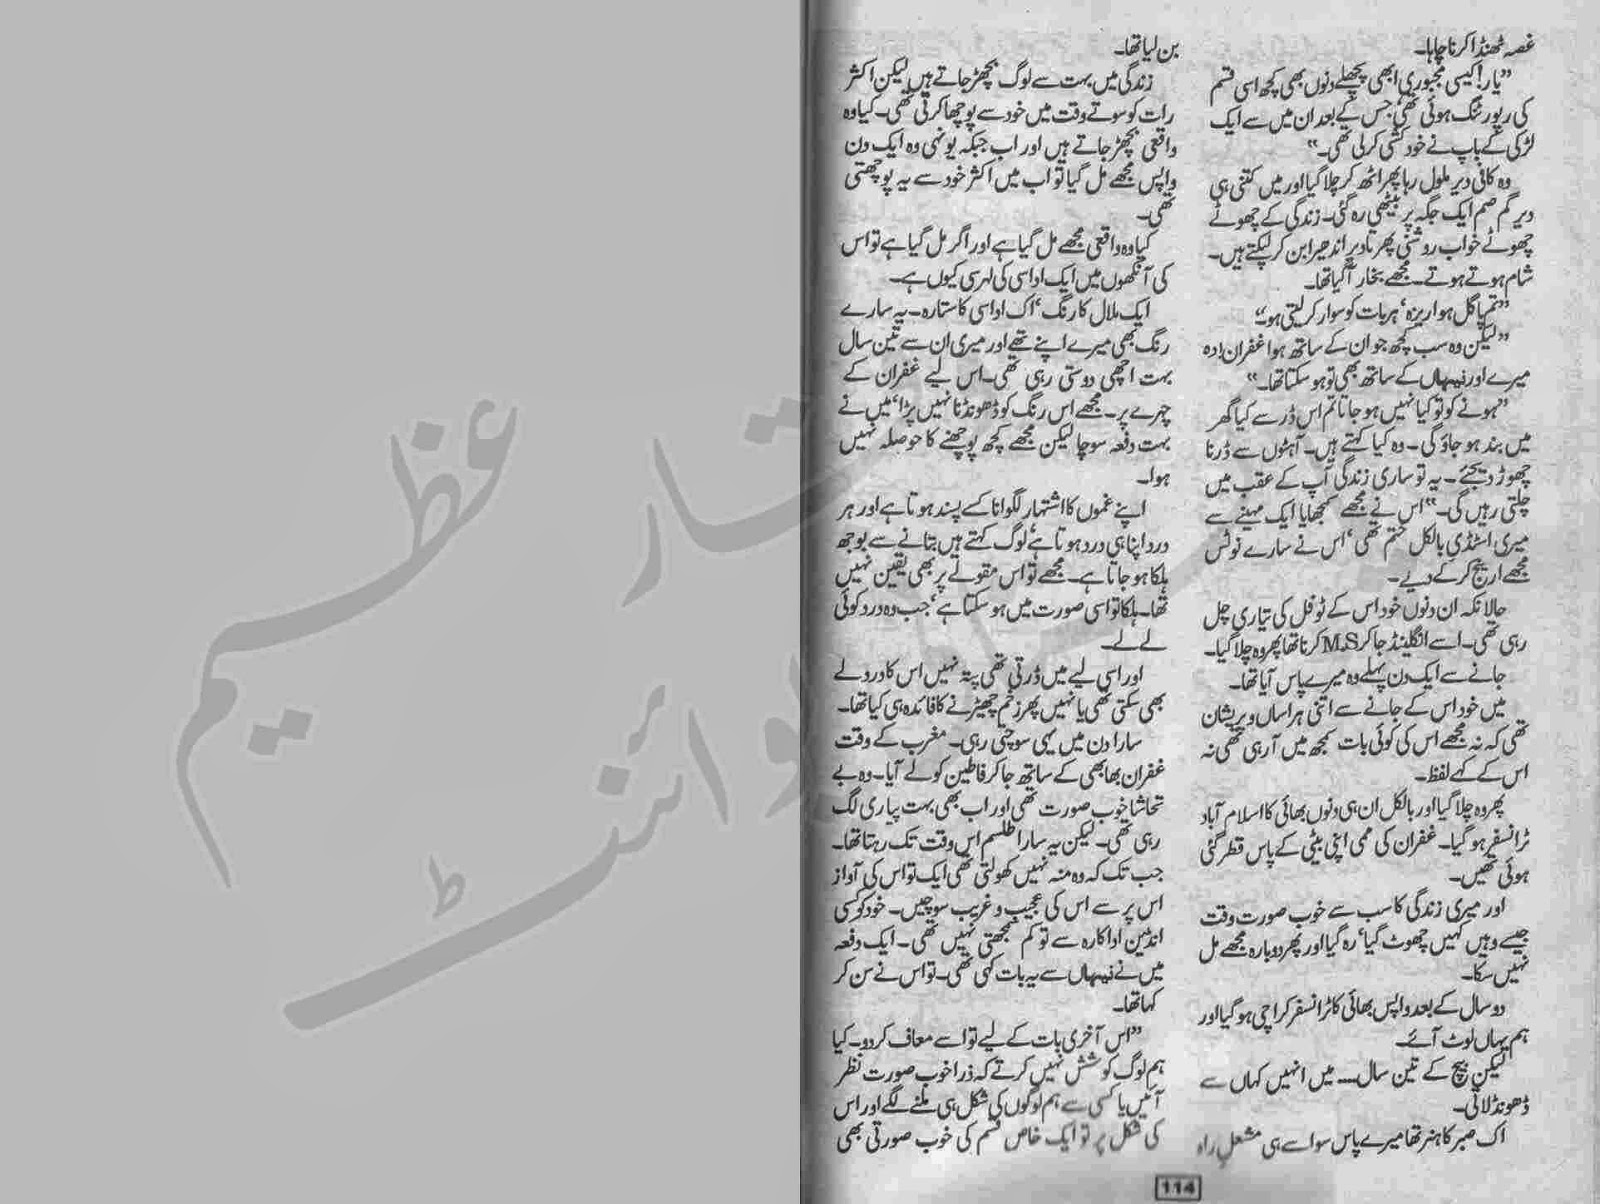 غصہ ٹھنڈا کرنا چاہا۔
”یار! کیسی مجبوری ابھی پچھلے دنوں بھی کچھ اسی قسم
کی رپورٹنگ ہوئی تھی، جس کے بعد ان میں سے ایک
لڑکی کے باپ نے خودکشی کرلی تھی۔“
وہ کافی دیر ملول رہا پھر اٹھ کر چلا گیا اور میں کتنی ہی
دیر گم صم ایک جگہ پر بیٹھی رہ گئی۔ زندگی کے چھوٹے
چھوٹے خواب روشنی پھر تا دیر اندھیرا بن کر لپکتے ہیں۔
شام ہوتے ہوتے۔ مجھے بخار آگیا تھا۔
”تم پاگل ہو اریزہ‘ ہر بات کو سوار کرلیتی ہو۔“
”لیکن وہ سب کچھ جو ان کے ساتھ ہوا غفران! وہ
میرے اور نیہاں کے ساتھ بھی تو ہو سکتا تھا۔“
”ہونے کو تو کیا نہیں ہو جاتا تم اس ڈر سے کیا گھر
میں بند ہو جاؤ گی۔ وہ کیا کہتے ہیں۔ آہٹوں سے ڈرنا
چھوڑ دیجئے۔ یہ تو ساری زندگی آپ کے عقب میں
چلتی رہیں گی۔“ اس نے مجھے سمجھایا ایک مہینے سے
میری اسٹڈی بالکل ختم تھی‘ اس نے سارے نوٹس
مجھے ارینج کر کے دیے۔
حالانکہ ان دنوں خود اس کے ٹوفل کی تیاری چل
رہی تھی۔ اسے انگلینڈ جا کر M.S کرنا تھا پھر وہ چلا گیا۔
جانے سے ایک دن پہلے وہ میرے پاس آیا تھا۔
میں خود اس کے جانے سے اتنی ہراساں و پریشان
تھی کہ نہ مجھے اس کی کوئی بات سمجھ میں آرہی تھی نہ
اس کے کہے لفظ۔
پھر وہ چلا گیا اور بالکل ان ہی دنوں بھائی کا اسلام آباد
ٹرانسفر ہو گیا۔ غفران کی ممی اپنی بیٹی کے پاس قطر گئی
ہوئی تھیں۔
اور میری زندگی کا سب سے خوب صورت وقت
جیسے وہیں کہیں چھوٹ گیا‘ رہ گیا اور پھر دوبارہ مجھے مل
نہیں سکا۔
دو سال کے بعد واپس بھائی کا ٹرانسفر کراچی ہو گیا اور
ہم یہاں لوٹ آئے۔
لیکن بیچ کے تین سال.... میں انہیں کہاں سے
ڈھونڈ لاتی۔
اک صبر کا ہنر تھا میرے پاس سو اسے ہی مشعل راہ
بن لیا تھا۔
زندگی میں بہت سے لوگ بچھڑ جاتے ہیں لیکن اکثر
رات کو سوتے وقت میں خود سے پوچھا کرتی تھی۔ کیا وہ
واقعی بچھڑ جاتے ہیں اور اب جبکہ یونہی وہ ایک دن
واپس مجھے مل گیا تو اب میں اکثر خود سے یہ پوچھتی
تھی۔
کیا وہ واقعی مجھے مل گیا ہے اور اگر مل گیا ہے تو اس
کی آنکھوں میں ایک اداسی کی لہر سی کیوں ہے۔
ایک ملال کا رنگ‘ اک اداسی کا ستارہ۔ یہ سارے
رنگ بھی میرے اپنے تھے اور میری ان سے تین سال
بہت اچھی دوستی رہی تھی۔ اس لیے غفران کے
چہرے پر۔ مجھے اس رنگ کو ڈھونڈنا نہیں پڑا‘ میں نے
بہت دفعہ سوچا لیکن مجھے کچھ پوچھنے کا حوصلہ نہیں
ہوا۔
اپنے غموں کا اشتہار لگوانا کسے پسند ہوتا ہے اور ہر
درد اپنا ہی درد ہوتا ہے‘ لوگ کہتے ہیں بتانے سے بوجھ
ہلکا ہو جاتا ہے۔ مجھے تو اس مقولے پر بھی یقین نہیں
تھا۔ ہلکا تو اسی صورت میں ہو سکتا ہے‘ جب وہ درد کوئی
لے لے۔
اور اسی لیے میں ڈرتی تھی پتہ نہیں اس کا درد لے
بھی سکتی تھی یا نہیں پھر زخم چھیڑنے کا فائدہ ہی کیا تھا۔
سارا دن میں یہی سوچتی رہی۔ مغرب کے وقت
غفران بھابھی کے ساتھ جا کر فاطین کو لے آیا۔ وہ بے
تحاشا خوب صورت تھی اور اب بھی بہت پیاری لگ
رہی تھی۔ لیکن یہ سارا طلسم اس وقت تک رہتا تھا۔
جب تک کہ وہ منہ نہیں کھولتی تھی ایک تو اس کی آواز
اس پر سے اس کی عجیب و غریب سوچیں۔ خود کو کسی
انڈین اداکارہ سے تو کم سمجھتی نہیں تھی۔ ایک دفعہ
میں نے نیہاں سے یہ بات کہی تھی۔ تو اس نے سن کر
کہا تھا۔
”اس آخری بات کے لیے تو اسے معاف کر دو۔ کیا
ہم لوگ کوشش نہیں کرتے کہ ذرا خوب صورت نظر
آئیں یا کسی سے ہم لوگوں کی شکل ہی ملنے لگے اور اس
کی شکل پر تو ایک خاص قسم کی خوب صورتی بھی
114
عظیم
پوائنٹ